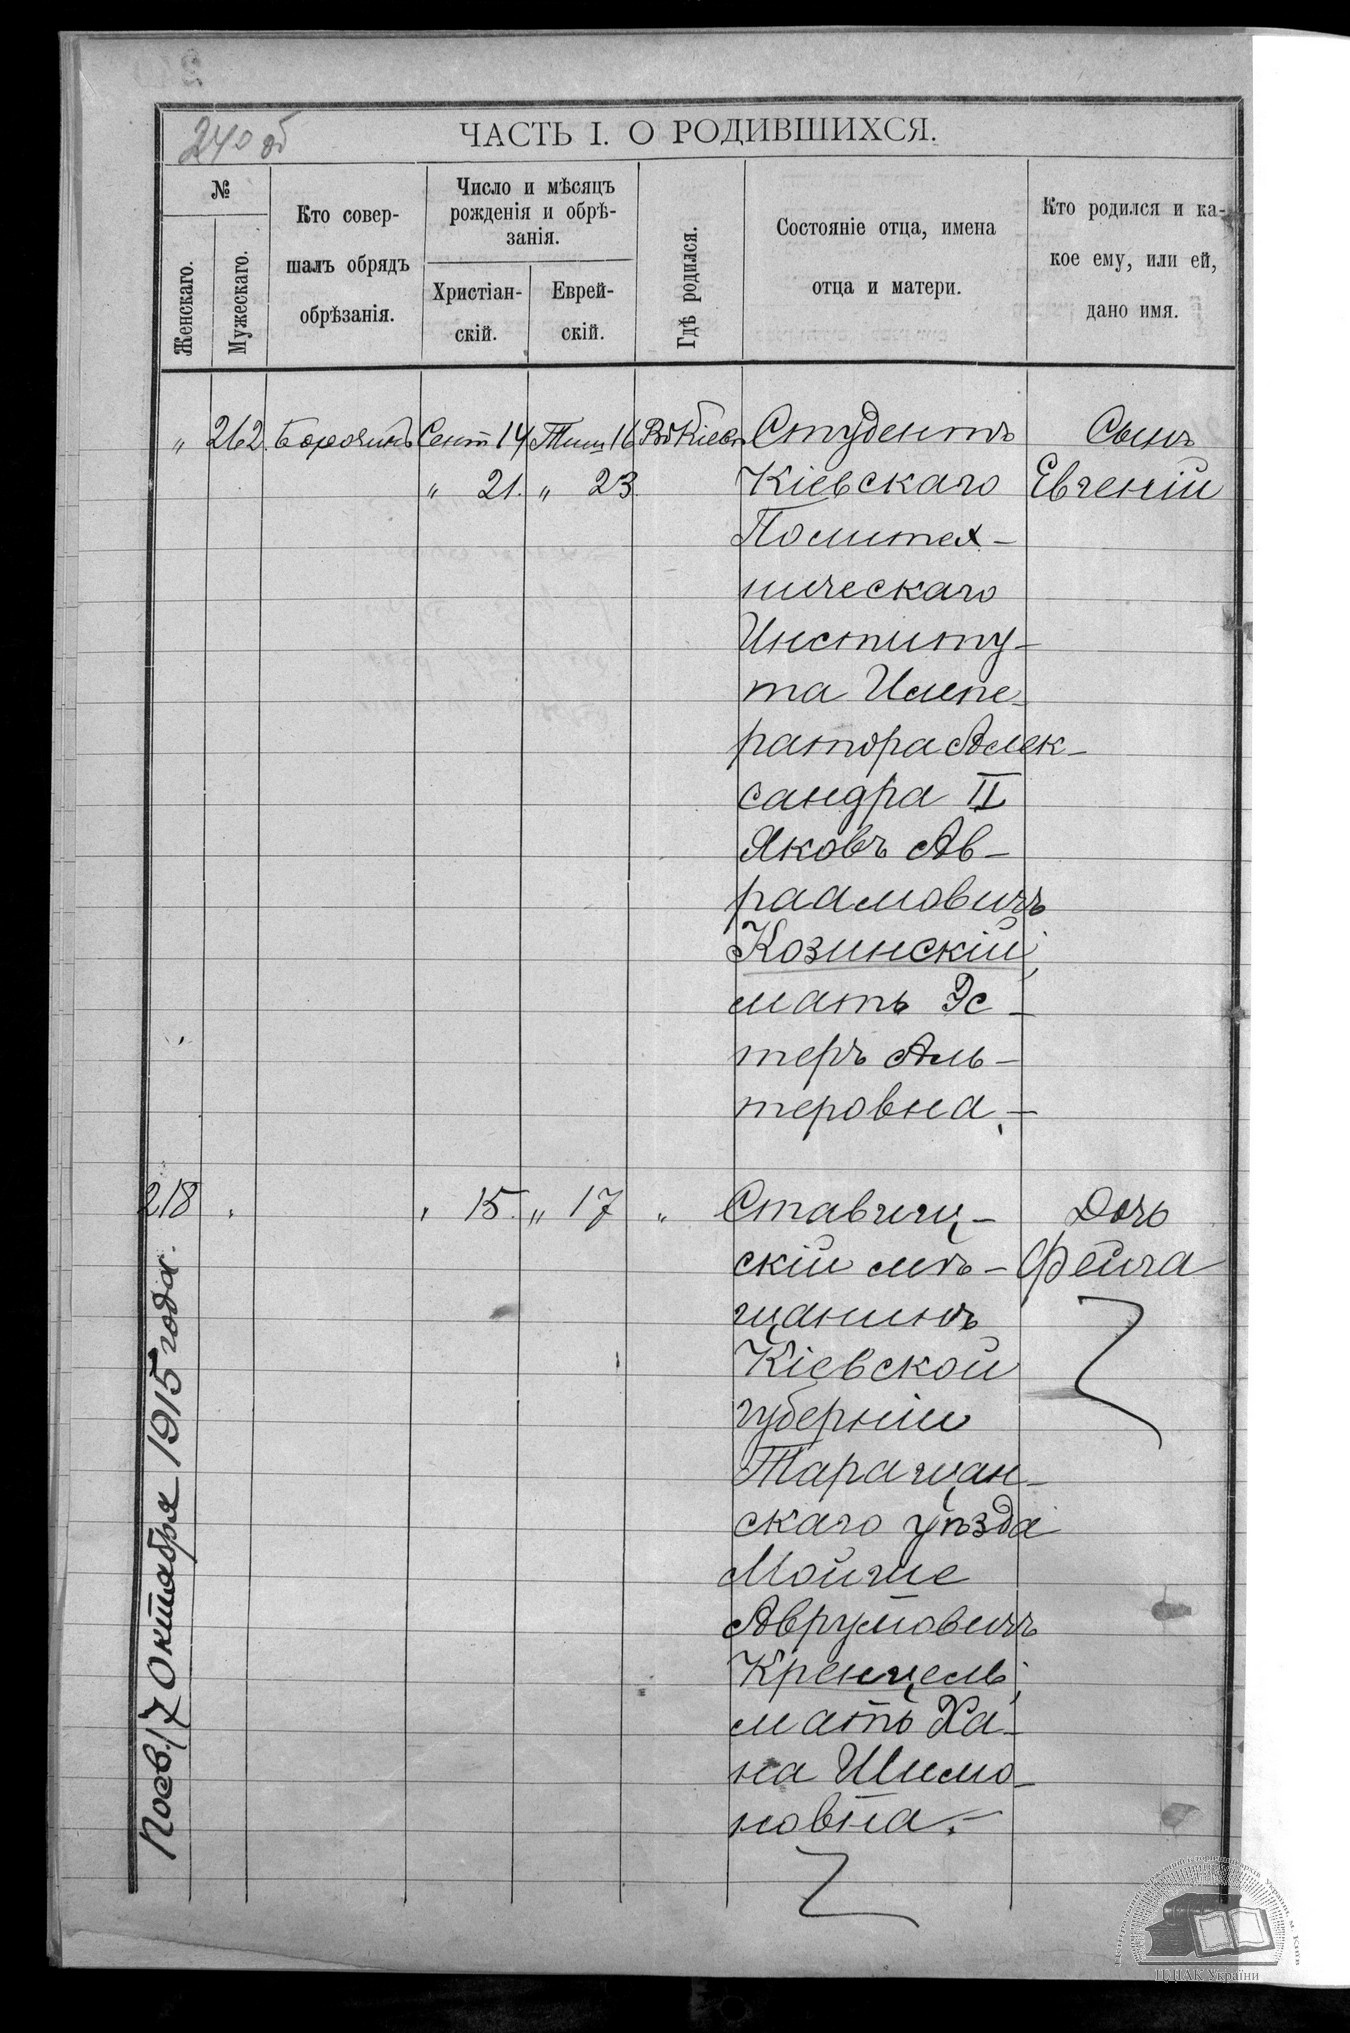 240 об
ЧАСТЬ I. О РОДИВШИХСЯ.
№
Женскаго.
Мужескаго.
Кто совер-
шалъ обрядъ
обрѣзанія.
Число и мѣсяцъ
рожденія и обрѣ-
занія.
Христіан-
скій.
Еврей-
скій.
Гдѣ родился.
Состояніе отца, имена
отца и матери.
Кто родился и ка-
кое ему, или ей,
дано имя.
„ 262. Сент 14 Тиш 16 Въ Кіевѣ Студентъ Сынъ
„ 21. „ 23. Кіевскаго Евгеній
Политех-
ническаго
Институ-
та Импе-
ратора Алек-
сандра II
Яковъ Ав-
раамовичъ
Козинскій,
мать Эс-
теръ Аль-
теровна.-
218 „ „ 15. „ 17 „ Ставищ- Дочь
скій мѣ- Фейга
щанинъ
Кіевской
губерніи
Таращан-
скаго уѣзда
Мойше
Аврумовичъ
Кренцель,
мать Ха-
на Шимо-
новна.-
17 Октября 1915 года.
ЦДІАК України